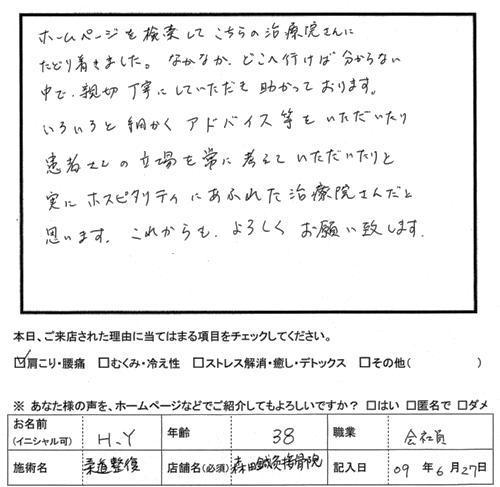 ホームページを検索してこちらの治療院さんに
たどり着きました。なかなか、どこへ行けば分からない
中で、親切丁寧にしていただき助かっております。
いろいろと細かくアドバイス等をいただいたり
患者さんの立場を常に考えていただいたりと
実にホスピタリティにあふれた治療院さんだと
思います。これからも、よろしくお願い致します。
本日、ご来店された理由に当てはまる項目をチェックしてください。
☑肩こり・腰痛 □むくみ・冷え性 □ストレス解消・癒し・デトックス □その他( )
※ あなた様の声を、ホームページなどでご紹介してもよろしいですか? □はい □匿名で □ダメ
お名前(イニシャル可) H.Y 年齢 38 職業 会社員
施術名 柔道整復 店舗名(必須) 森田鍼灸接骨院 記入日 09年6月27日